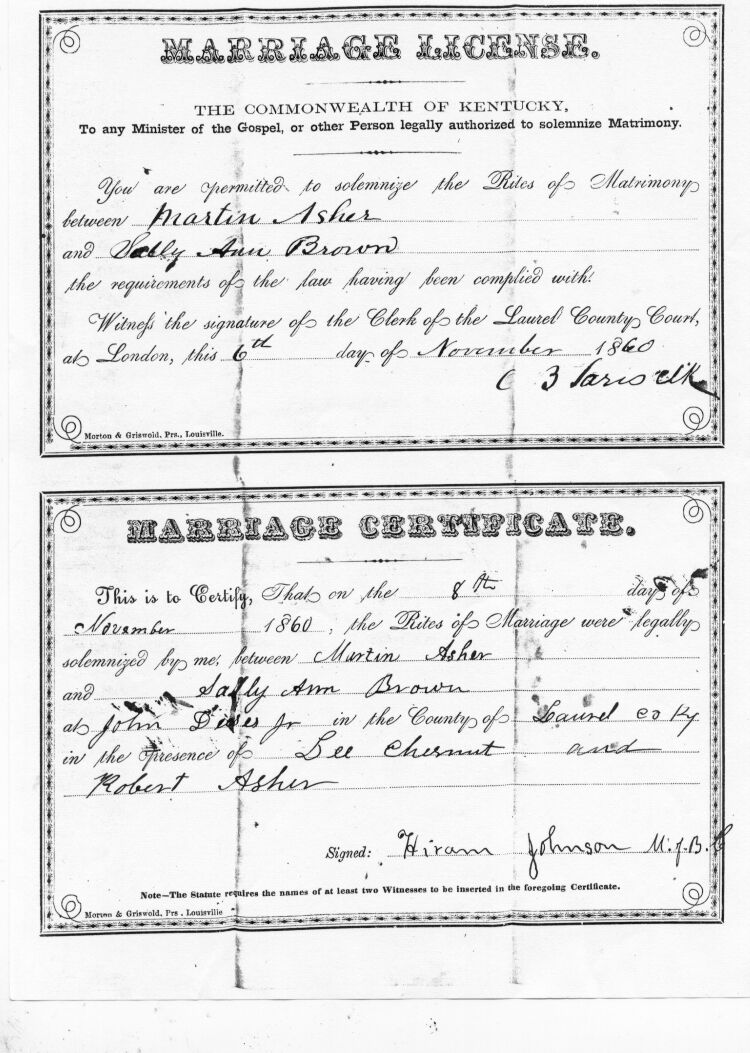 MARRIAGE LICENSE.
THE COMMONWEALTH OF KENTUCKY,
To any Minister of the Gospel, or other Person legally authorized to solemnize Matrimony.
You are permitted to solemnize the Rites of Matrimony
between Martin Asher
and Sally Ann Brown
the requirements of the law having been complied with.
Witness the signature of the Clerk of the Laurel County Court,
at London, this 6th day of November 1860
C B
Morton & Griswold, Prs., Louisville.
MARRIAGE CERTIFICATE.
This is to Certify, That on the 8th day of
November 1860, the Rites of Marriage were legally
solemnized by me, between Martin Asher
and Sally Ann Brown
at John Jr in the County of Laurel co Ky
in the Presence of Lee Chesnut and
Robert Asher
Signed: Hiram Johnson
Note—The Statute requires the names of at least two Witnesses to be inserted in the foregoing Certificate.
Morton & Griswold, Prs., Louisville